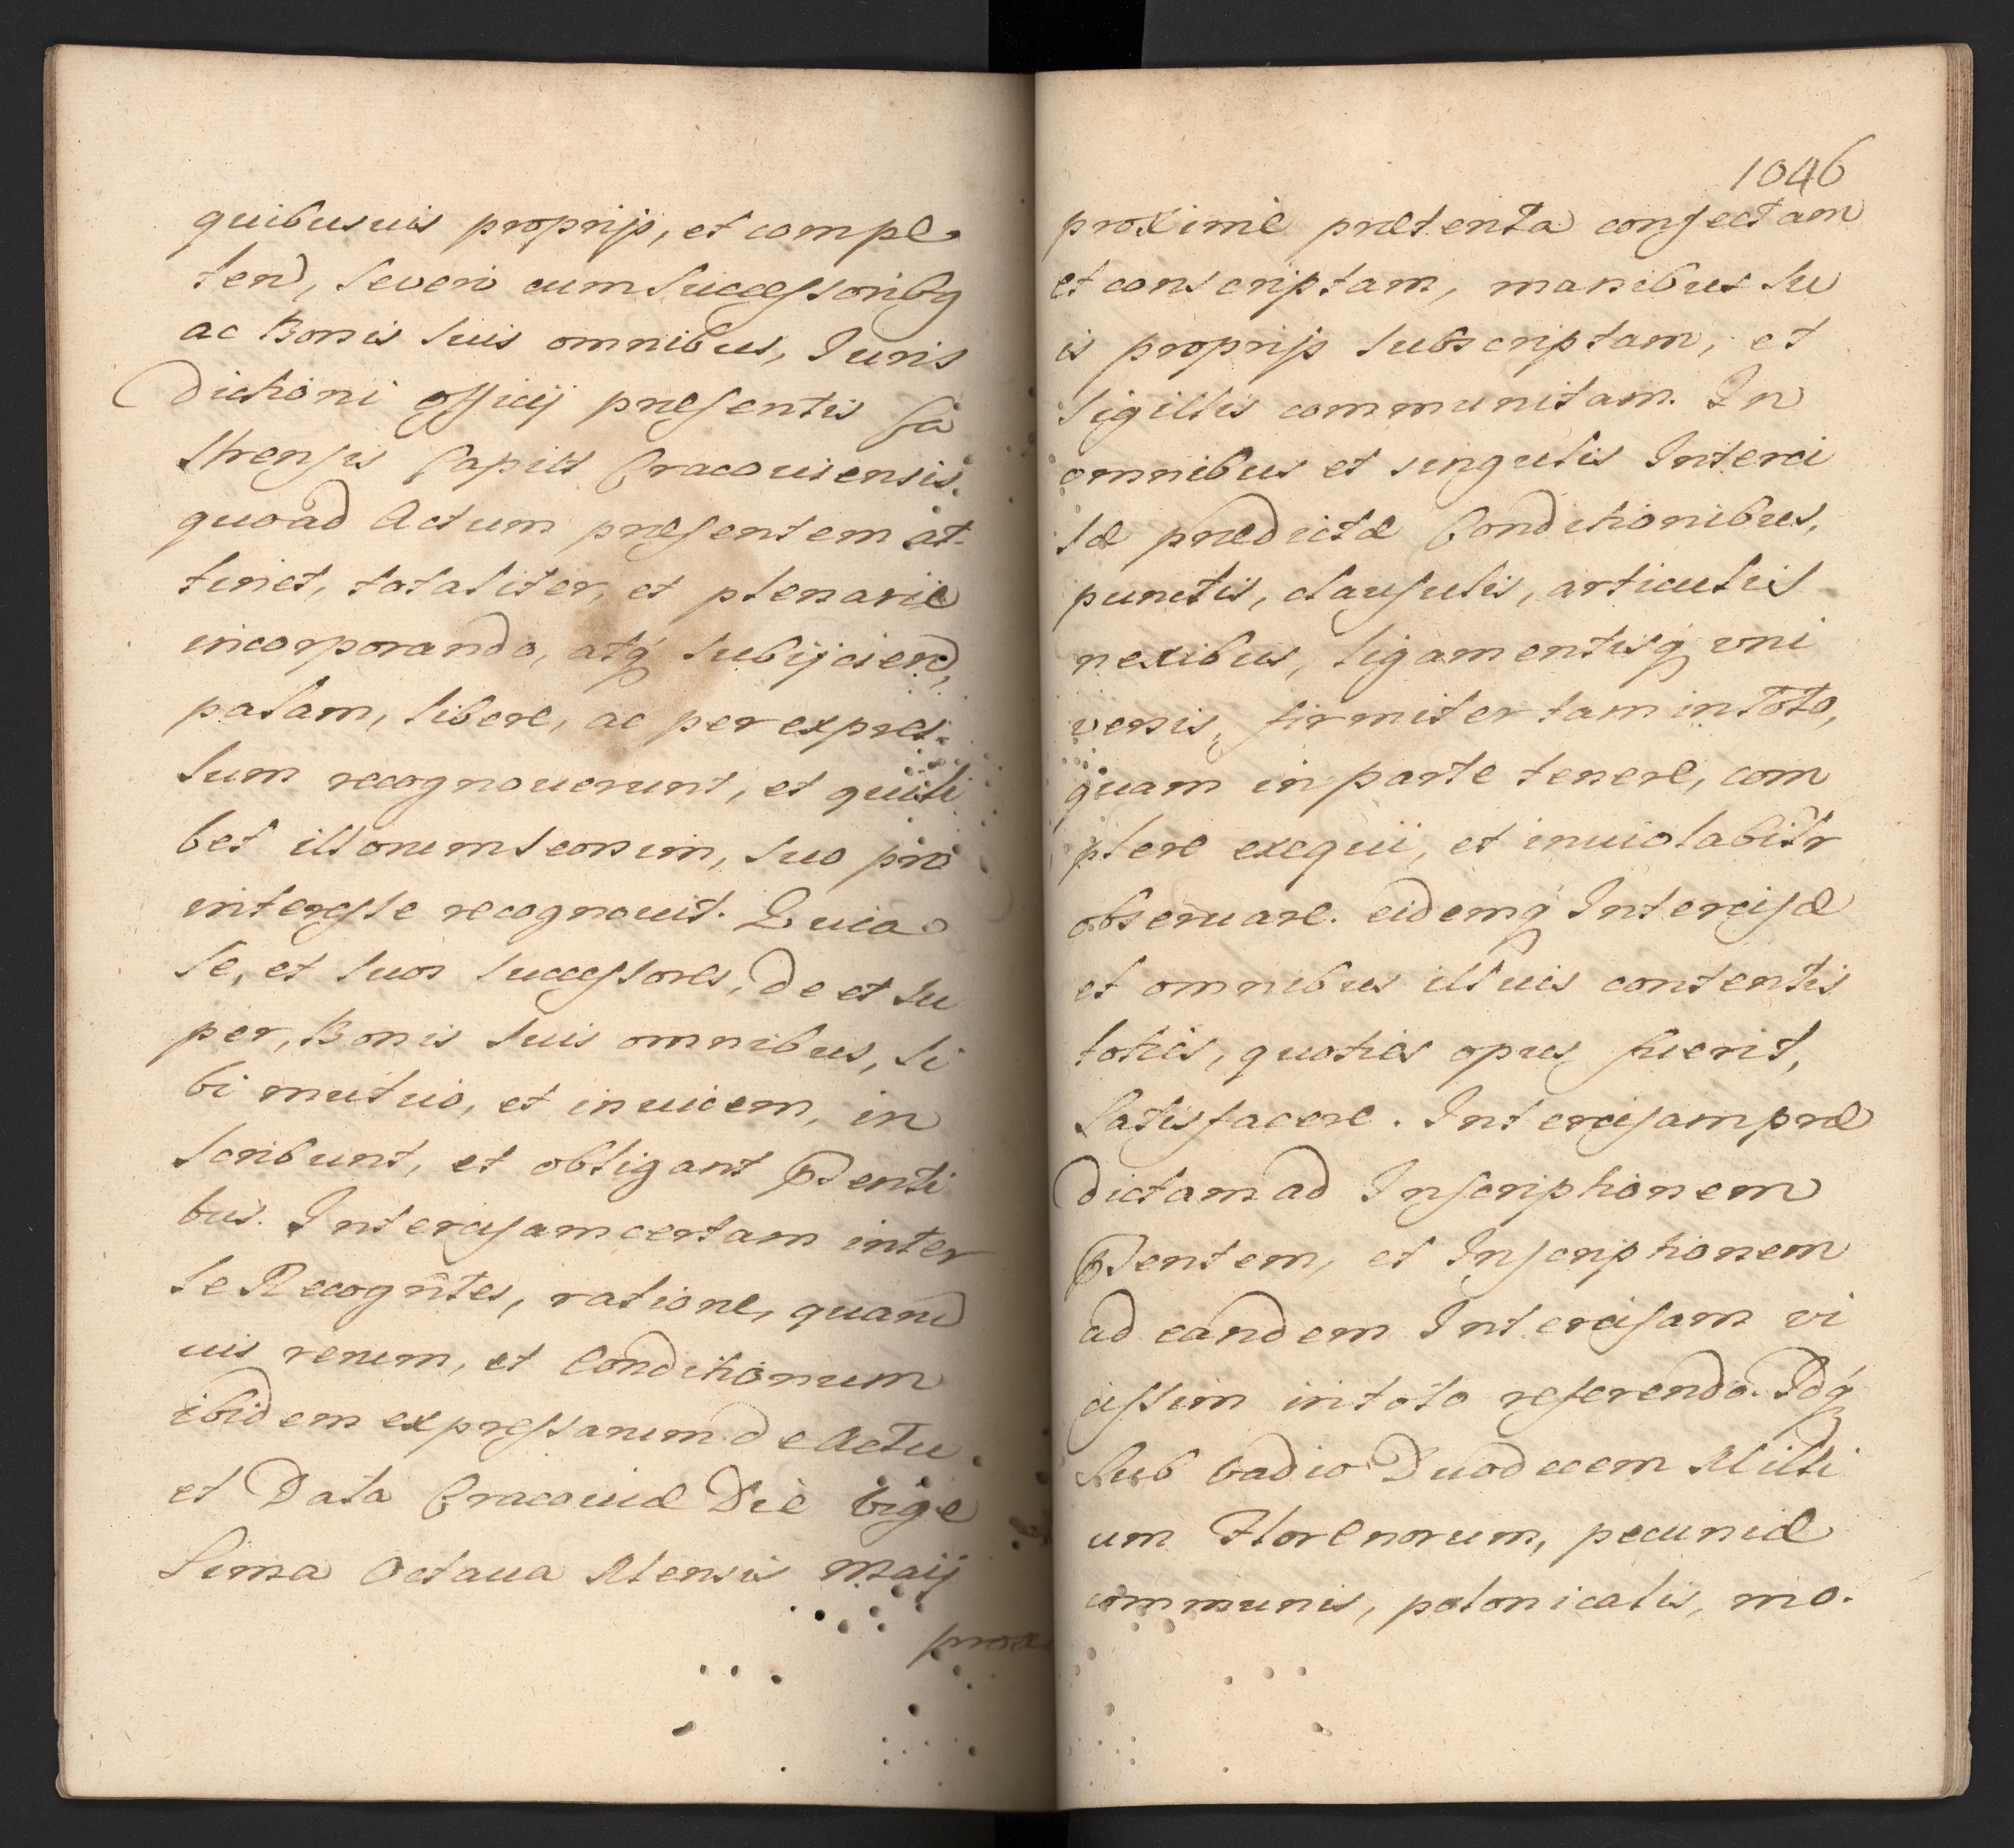 quibusuis proprijs, et comple
ten, seuero cum Successoribq
ac Bonis suis omnibus, Juris
dictioni officij præsentis Ca
strensis Capitl Cracouiensis.
quoad Actum præsentem at-
tinet, totaliter, et plenarie
incorporando, atq subijciend,
palam, libere, ac per expres-
sum recognouerunt, et quili
bet illorum seorsim, suo pro
interesse recognouit. Quia
se, et suos successores, de et su
per, Bonis suis omnibus, si
bi mutuo, et inuicem, in
scribunt, et obligant pnti
bus. Intercisam certam inter
se Recognntes, ratione, quarū
uis rerum, et Conditionum
ibidem expressarum de Actu
et Data Cracouiæ Die vige
sima Octaua Mensis Maij
proxi
1046
proxime præterita confectam
et conscriptam, manibus su
is proprijs subscriptam, et
sigillis communitam. In
omnibus et singulis Interci
sæ prædictæ Conditionibus,
punctis, clausulis, articulis
nexibus, ligamentisq vni
versis, firmiter tam in Toto,
quam in parte tenere, com
plere exequi, et inuiolabitr
obseruare. eidemq Intercisæ
et omnibus illius contentis
toties, quoties opus fuerit,
satisfacere. Intercisam præ
dictam ad Inscriptionem
pntem, et Inscriptionem
ad eandem Intercisam vi
cissim in toto referendo. Idq
sub vadio Duodecem Milli
um Florenorum, pecuniæ
communis, polonicalis, mo.